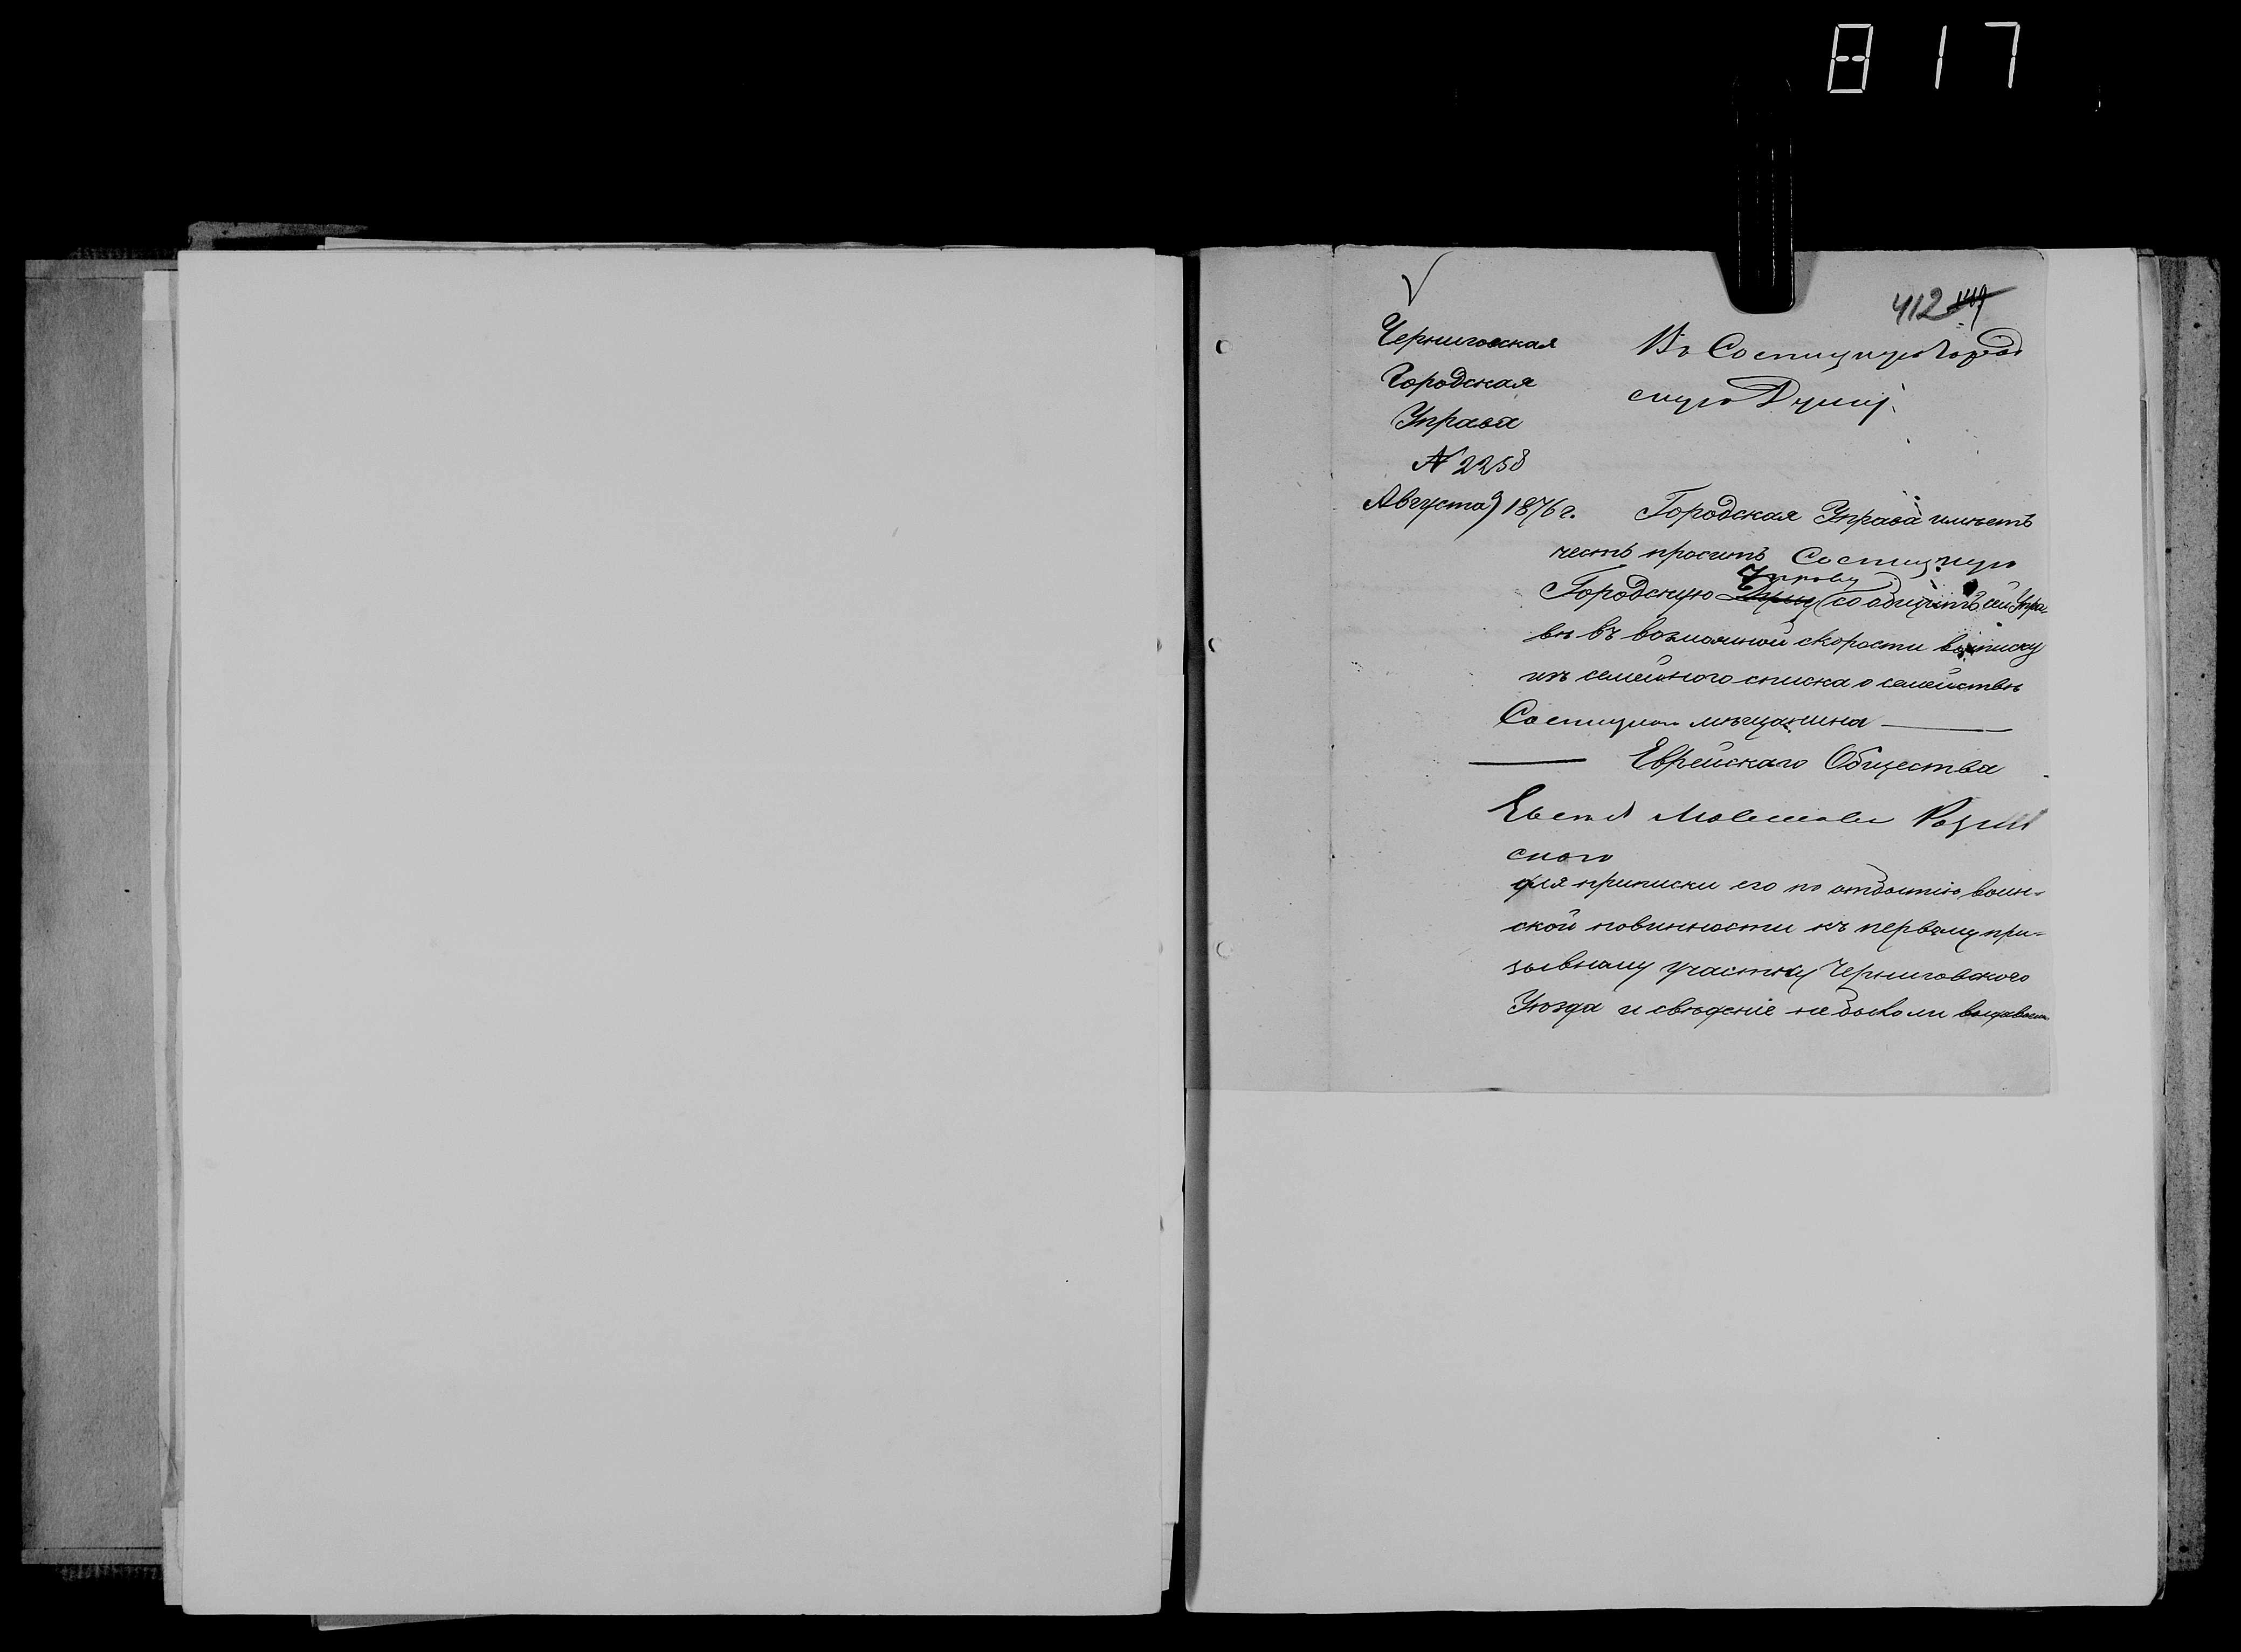 817
412 149
Черниговская
Городская
Управа
№ 2258
Августа 9 1876 г.
Въ Сосницкую Город
скую Думу.
Городская Управа имѣетъ
честь проситъ Сосницкую
Управу
Городскую Думу сообщить сей Упра-
вѣ въ возможной скорости выписку
изъ семейного списка о семействѣ
Сосницкаго мѣщанина
Еврейскаго Общества
скаго
для приписки его по отбытію воин-
ской повинности къ первому при-
зывному участку Черниговского
Уѣзда и свѣдѣніе не былоли выдаваемо